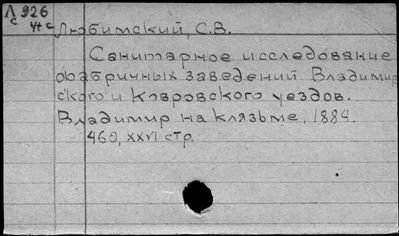 Л 926
с
чт с Любимский, С.В.
Санитарное исследование
фабричных заведений Владимир
ского и Ковровского уездов.
Владимир на Клязьме, 1884.
460, XXVI стр.